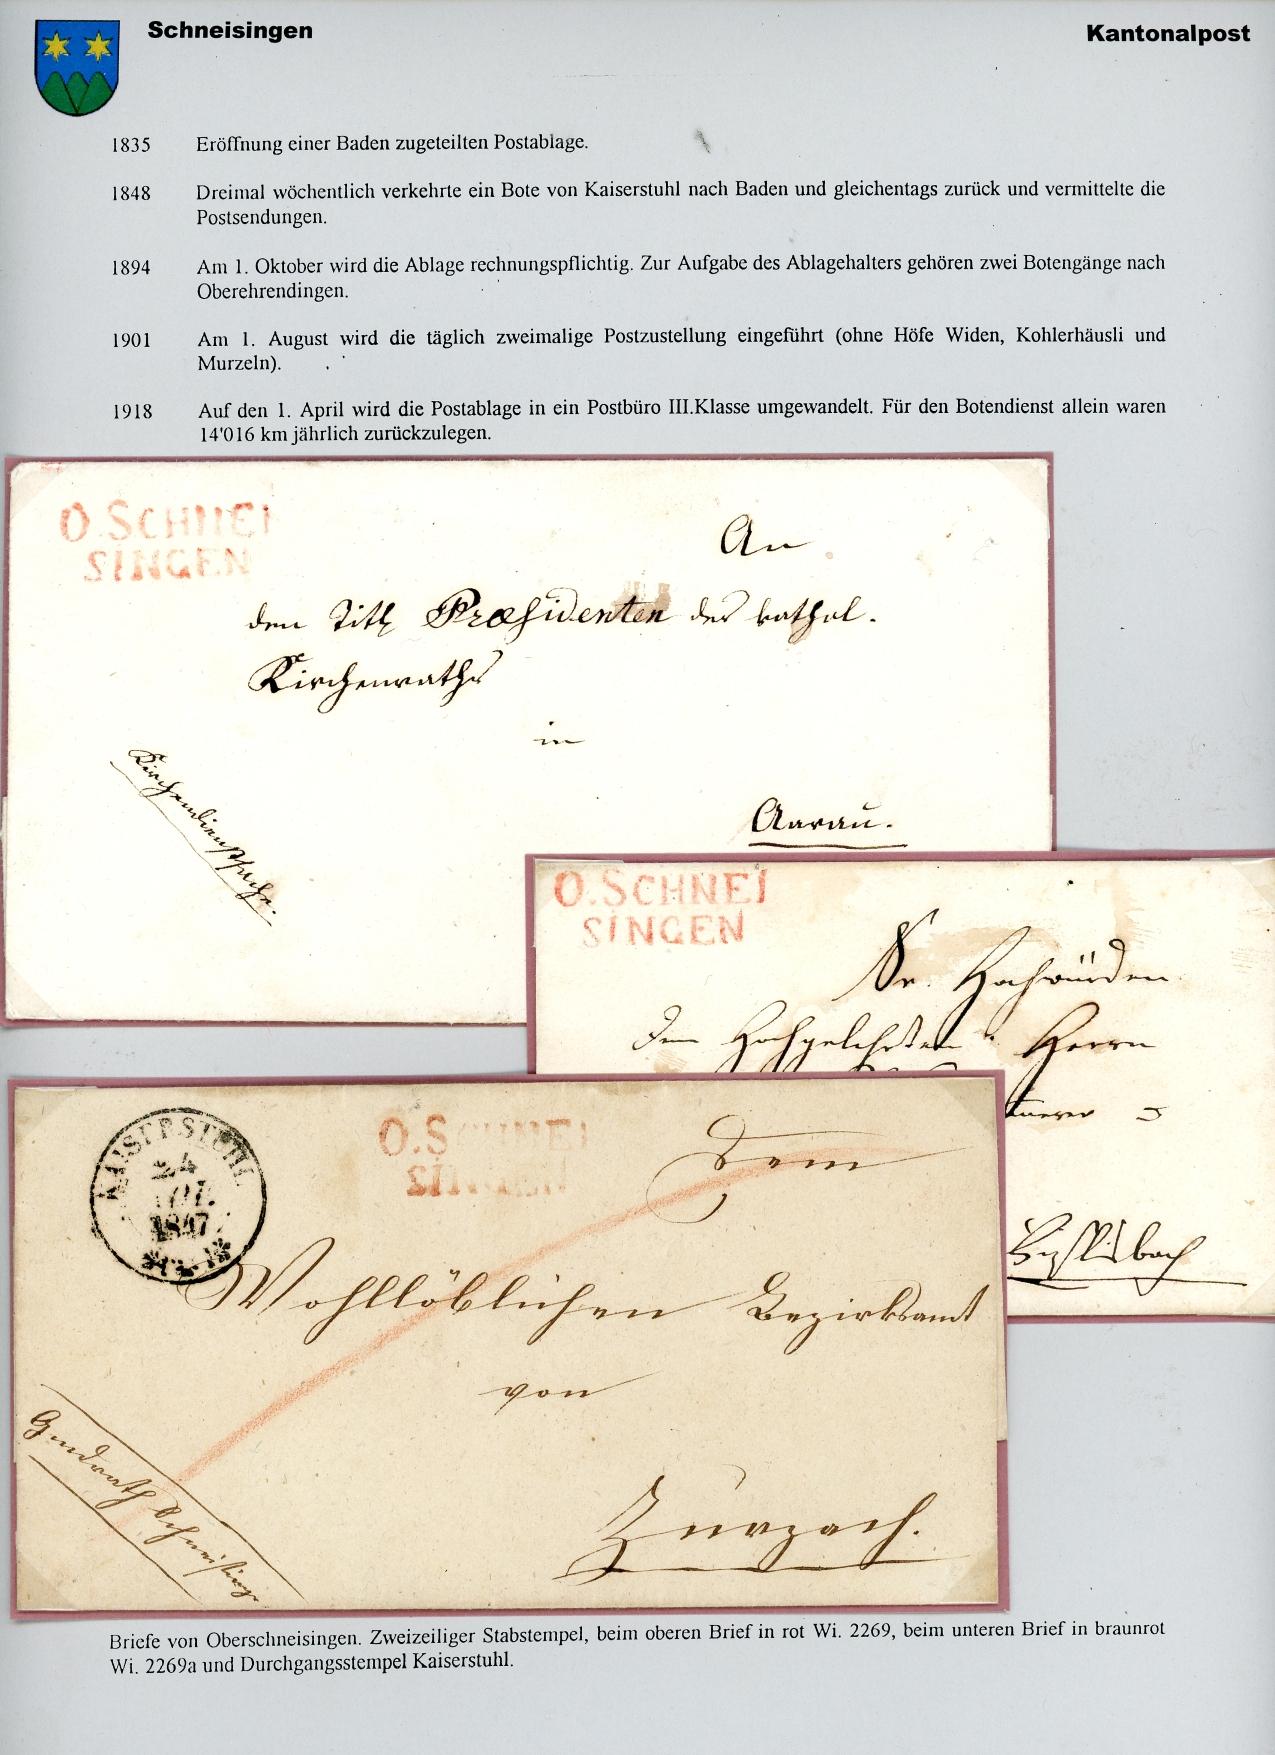 Schneisingen
Kantonalpost
1835 Eröffnung einer Baden zugeteilten Postablage.
1848 Dreimal wöchentlich verkehrte ein Bote von Kaiserstuhl nach Baden und gleichentags zurück und vermittelte die
Postsendungen.
1894 Am 1. Oktober wird die Ablage rechnungspflichtig. Zur Aufgabe des Ablagehalters gehören zwei Botengänge nach
Oberehrendingen.
1901 Am 1. August wird die täglich zweimalige Postzustellung eingeführt (ohne Höfe Widen, Kohlerhäusli und
Murzeln).
1918 Auf den 1. April wird die Postablage in ein Postbüro III.Klasse umgewandelt. Für den Botendienst allein waren
14'016 km jährlich zurückzulegen.
O. SCHNEI
SINGEN
An
den Titl. Præsidenten des kathol.
Kirchenraths
in
Aarau.
Kirchendienstsache.
O. SCHNEI
SINGEN
Sr. Hochwürden
Dem Hochgelehrten Herrn
Bisslisbach
KAISERSTUHL
24
NOV.
1847
O. SCHNEI
SINGEN
Dem
Wohllöblichen Bezirksamt
von
Zurzach.
Gmdrath Schneisingen
Briefe von Oberschneisingen. Zweizeiliger Stabstempel, beim oberen Brief in rot Wi. 2269, beim unteren Brief in braunrot
Wi. 2269a und Durchgangsstempel Kaiserstuhl.